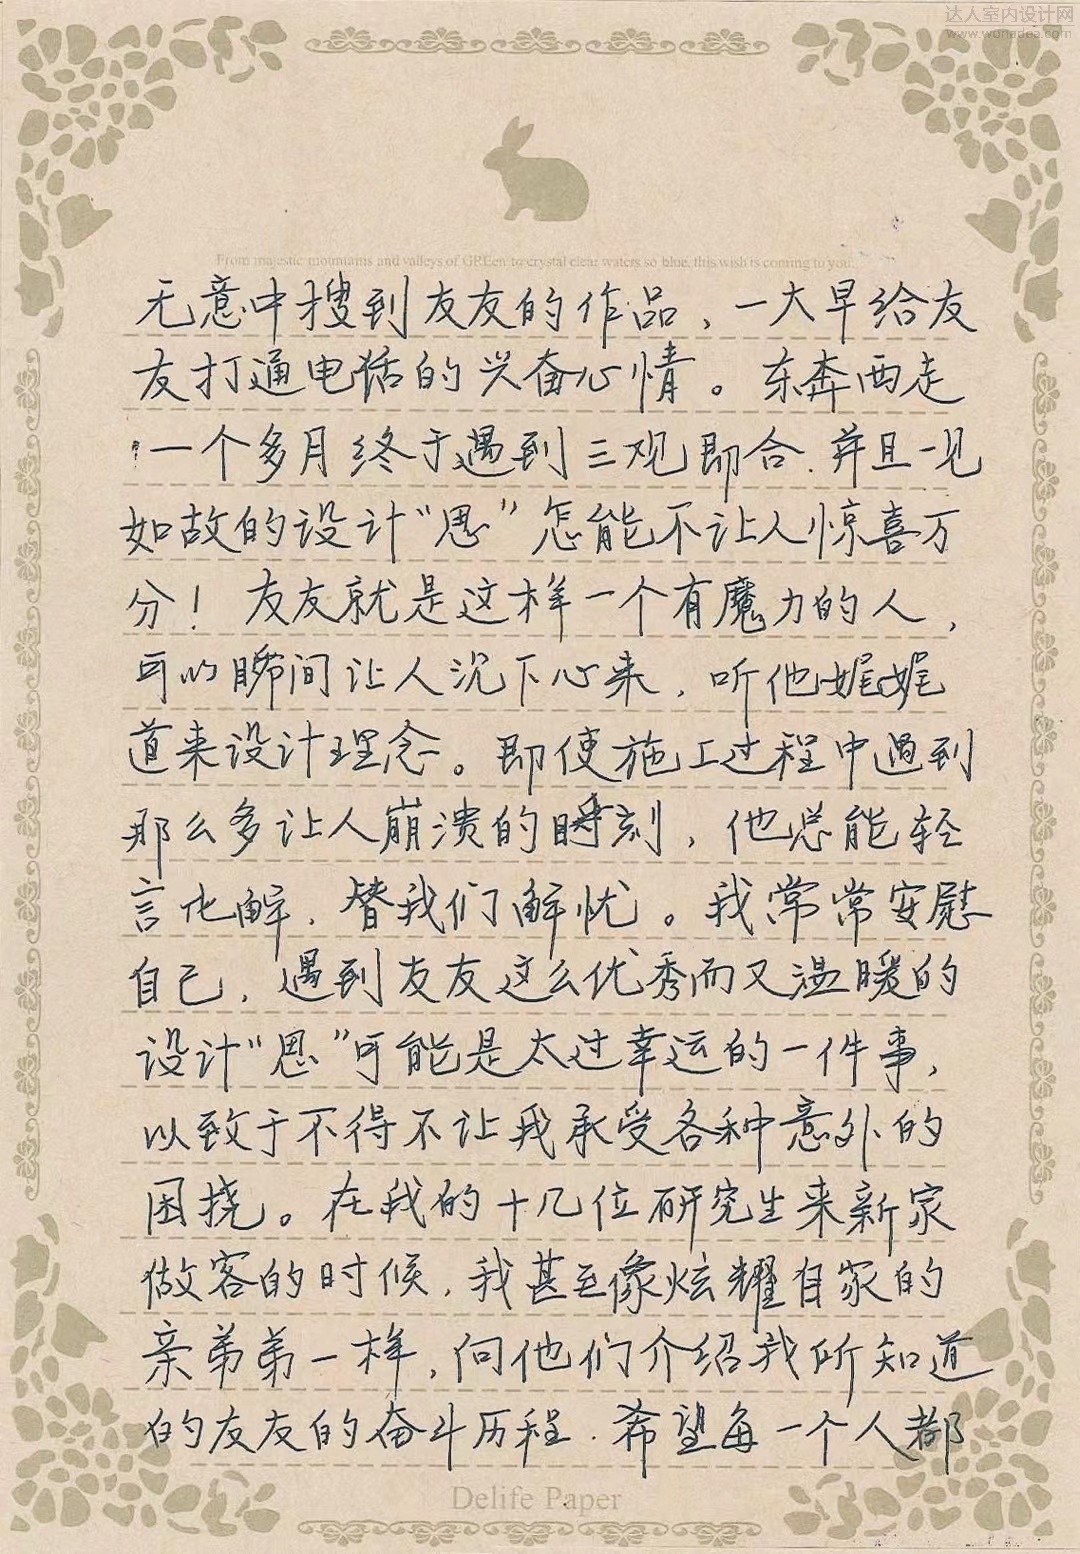 达人室内设计网
www.wonadea.com
From majestic mountains and valleys of GREen to crystal clear waters so blue, this wish is coming to you...
无意中搜到友友的作品，一大早给友
友打通电话的兴奋心情。东奔西走
一个多月终于遇到三观即合.并且一见
如故的设计“思”怎能不让人惊喜万
分！友友就是这样一个有魔力的人，
可以瞬间让人沉下心来，听他娓娓
道来设计理念。即使施工过程中遇到
那么多让人崩溃的时刻，他总能轻
言化解，替我们解忧。我常常安慰
自己，遇到友友这么优秀而又温暖的
设计“思”可能是太过幸运的一件事，
以致于不得不让我承受各种意外的
困挠。在我的十几位研究生来新家
做客的时候，我甚至像炫耀自家的
亲弟弟一样，向他们介绍我所知道
的友友的奋斗历程.希望每一个人都
Delife Paper